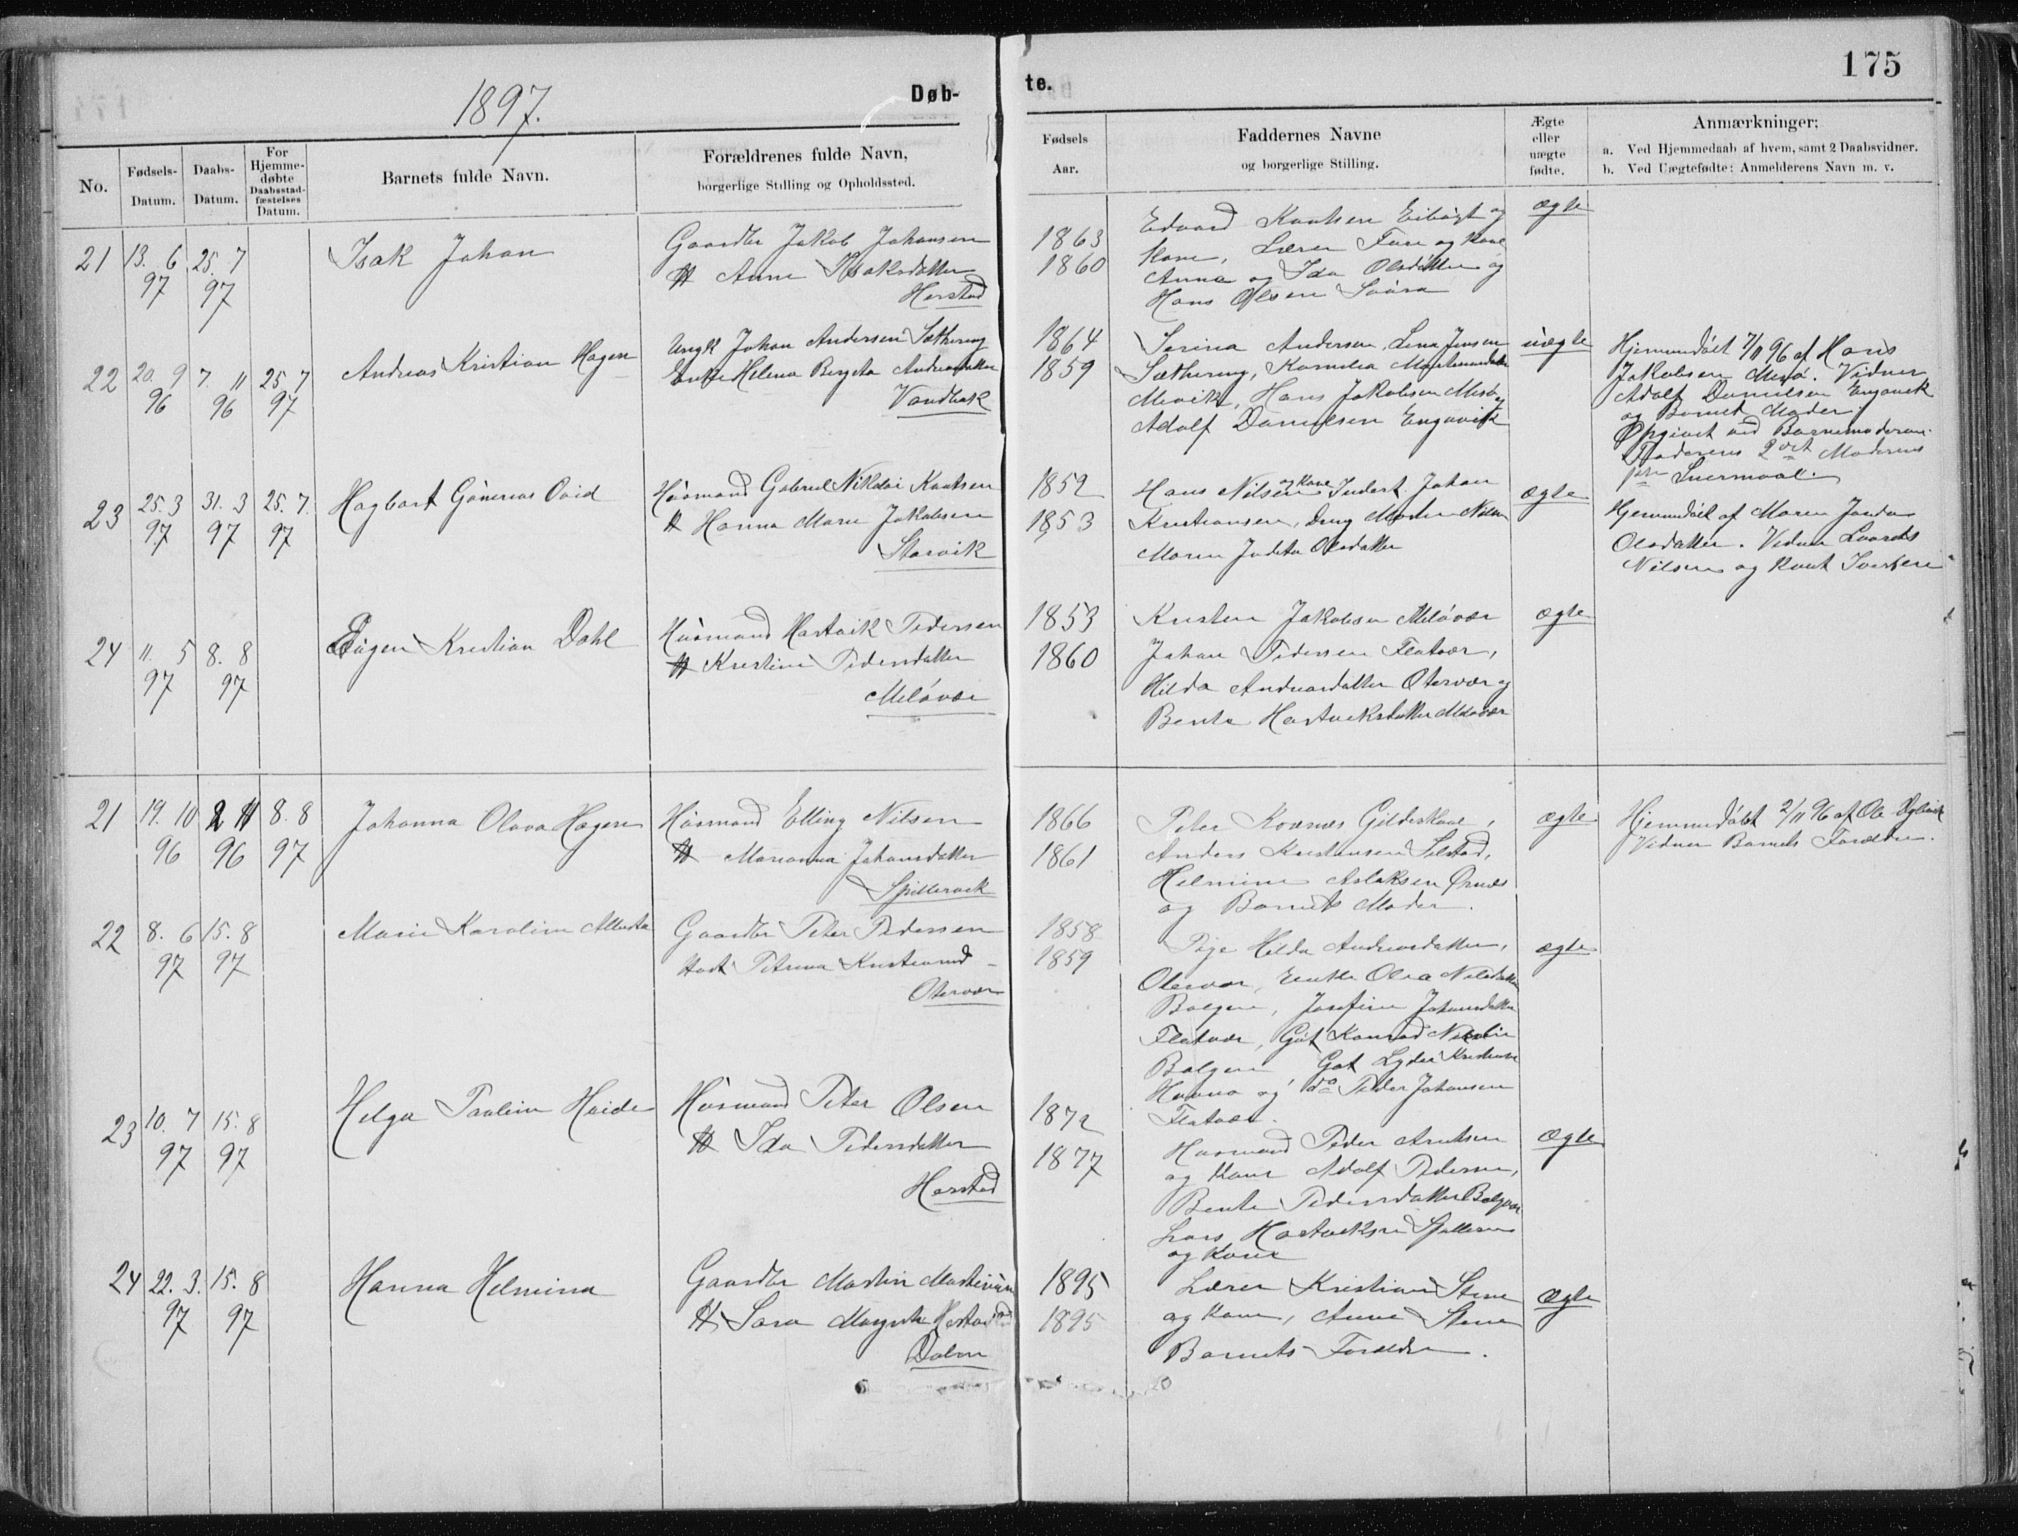 1897.
Døb-
te.
175
No.
Fødsels-
Datum.
Daabs-
Datum.
For
Hjemme-
døbte
Daabsstad-
fæstelses
Datum.
Barnets fulde Navn.
Forældrenes fulde Navn,
borgerlige Stilling og Opholdssted.
Fødsels
Aar.
Faddernes Navne
og borgerlige Stilling.
Ægte
eller
uægte
fødte.
Anmærkninger:
a. Ved Hjemmedaab af hvem, samt 2 Daabsvidner.
b. Ved Uægtefødte: Anmelderens Navn m. v.
21 13. 6 25. 7
97 97
Isak Johan
Gaardbr Jakob Johansen
H Anne Isaksdatter
Horstad
1863
1860
Edvard Knutsen og
Kone, Lærer og Kone
Anna og Ida Olsdatter og
Hans Olsen
ægte
22 20. 9 7. 11 25. 7
96 96 97
Andreas Kristian Hagen
Ungk Johan Andersen Sætherng
Enke Helena Bergeta Andreasdatter
Vandbak
1864
1859
Sorina Andersen, Lena Jensen
Sætherng, Kornelia
Mevik, Hans Jakobsen
Adolf Danielsen Engavik
uægte
Hjemmedøbt 7/11 96 af Hans
Jakobsen Vidner
Adolf Danielsen Engavik
og Barnets Moder.
Opgivet ved Barnemoderen.
Faderens 2det Moderens
Leiermaal.
23 25. 3 31. 3 25. 7.
97 97 97
Hagbart Ovid
Husmand Gabriel Nikolai Knutsen
H Hanna Marie Jakobsen
Storvik
1852
1853
Hans Nilsen og Kone Johan
Kristiansen,
Maren Judita Olsdatter
ægte
Hjemmedøbt af Maren
Olsdatter. Vidner
Nilsen og Knut Iversen
24 11. 5 8. 8
97 97
Eugen Kristian Dahl
Husmand Hartvik Pedersen
H Kristine Pedersdatter
Meløvær
1853
1860
Kristen Jakobsen Meløvær
Johan Pedersen Flatvær,
Hilda Andreasdatter Otervær og
Benta Hartviksdatter Meløvær
ægte
21 19. 10 2 11 8. 8
96 96 97
Johanna Olava Hagen
Husmand Elling Nilsen
H Marianna Johansdatter
Spillervik
1866
1861
Peter Kvarnes Gildeskaal,
Anders Kristensen Selstad,
Helmine Aslaksen Ørnæs
og Barnets Moder.
ægte
Hjemmedøbt 2/11 96 af Ole
Vidner Barnets Forældre.
22 8. 6 15. 8
97 97
Marie Karoline
Gaardbr Peter Pedersen
Petrina
Otervær
1858
1859
Pige Hilda Andreasdatter,
Otervær, Enke Olea Nilsdatter
Bolgen, Josefine Johansdatter
Flatvær, Gut Konrad
Bolgen Gut Lyder
og do Peder Johansen
Flatvær.
ægte
23 10. 7 15. 8
97 97
Helga Pauline
Husmand Peter Olsen
H Ida Pedersdatter
Horstad
1872
1877
Husmand Peder Arntsen
og Kone Adolf Pedersen,
Benta Pedersdatter
Lars Hartviksen
og Kone
Ægte
24 22. 3. 15. 8
97 97
Hanna Helmina
Gaardbr Martin
H Sara
Dalen
1895
1895
Lærer Kristian Stene
og Kone, Anne Stene
Barnets Forældre.
Ægte